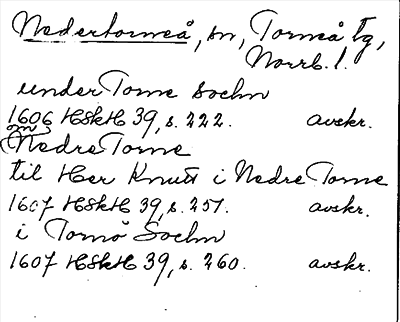 Nedertorneå, sn, Torneå tg,
Norrb. l.
under Torne sochn
1606 HSkH 39, s. 222. avskr.
(on Nedre Torne
til Her Knutt i Nedre Torne
1607 HSkH 39, s. 251. avskr.
i Tornö Sochn
1607 HSkH 39, s. 260. avskr.